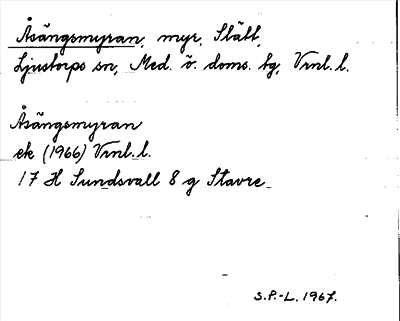 Åsängsmyran, myr, Slätt,
Ljustorps sn, Med. ö. doms. tg, Vrnl. l.
Åsängsmyran
ek (1966) Vrnl. l.
17 H Sundsvall 8 g Stavre
S.P.-L. 1967.